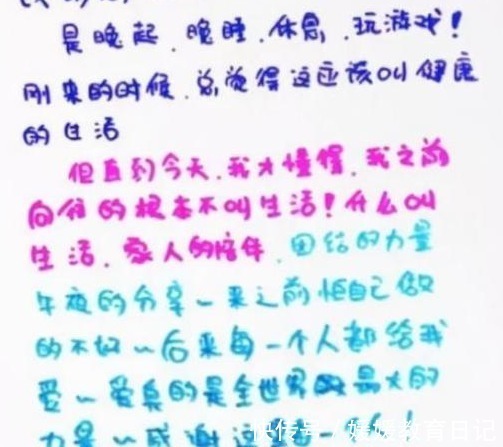 是晚起、晚睡、休息、玩游戏!
刚来的时候、总觉得这应该叫健康
的生活
但直到今天、我才懂得、我之前
向往的根本不叫生活!什么叫
生活、家人的陪伴、团结的力量
午夜的分享~来之前怕自己做
的不好~后来每一个人都给我
爱~爱真的是全世界最大的
力量~感谢
快传号/媛媛教育日记